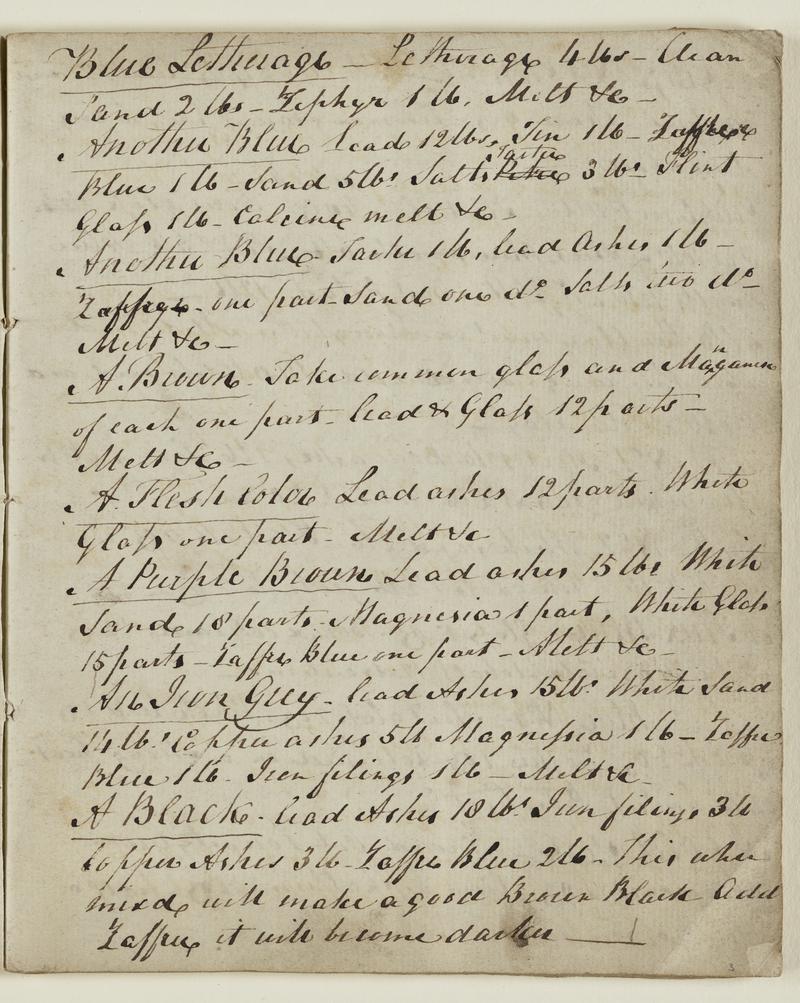 Blue Letherage – Letherage 4 lbs – Clean
Sand 2 lbs – Zephyr 1 lb, Melt &c –
Another Blue lead 12 lbs, Tin 1 lb – Zaffree
Blue 1 lb – Sand 5 lbs Salts Tartar Petre 3 lbs Flint
Glass 1 lb – Calcine melt &c –
Another Blue – Tarter 1 lb, lead Ashes 1 lb –
Zaffre – one part – Sand one do Salts two do –
Melt &c –
A. Brown – Take common glass and Manganese
of each one part – lead & Glass 12 parts –
Melt &c –
A. Flesh Color Lead ashes 12 parts. White
Glass one part – Melt &c
A Purple Brown Lead ashes 15 lbs White
Sand 18 parts – Magnesia 1 part, White Glass
15 parts – Zaffre Blue one part – Melt &c –
An Iron Grey – lead Ashes 15 lbs White Sand
14 lbs Copper ashes 5 lb Magnessia 1 lb – Zaffre
Blue 1 lb – Iron filings 1 lb – Melt &c –
A Black – lead Ashes 18 lbs Iron filings 3 lb
Copper Ashes 3 lb – Zaffre Blue 2 lb – This when
mixd will make a good Brown Black Add
Zaffree it will become darker
3